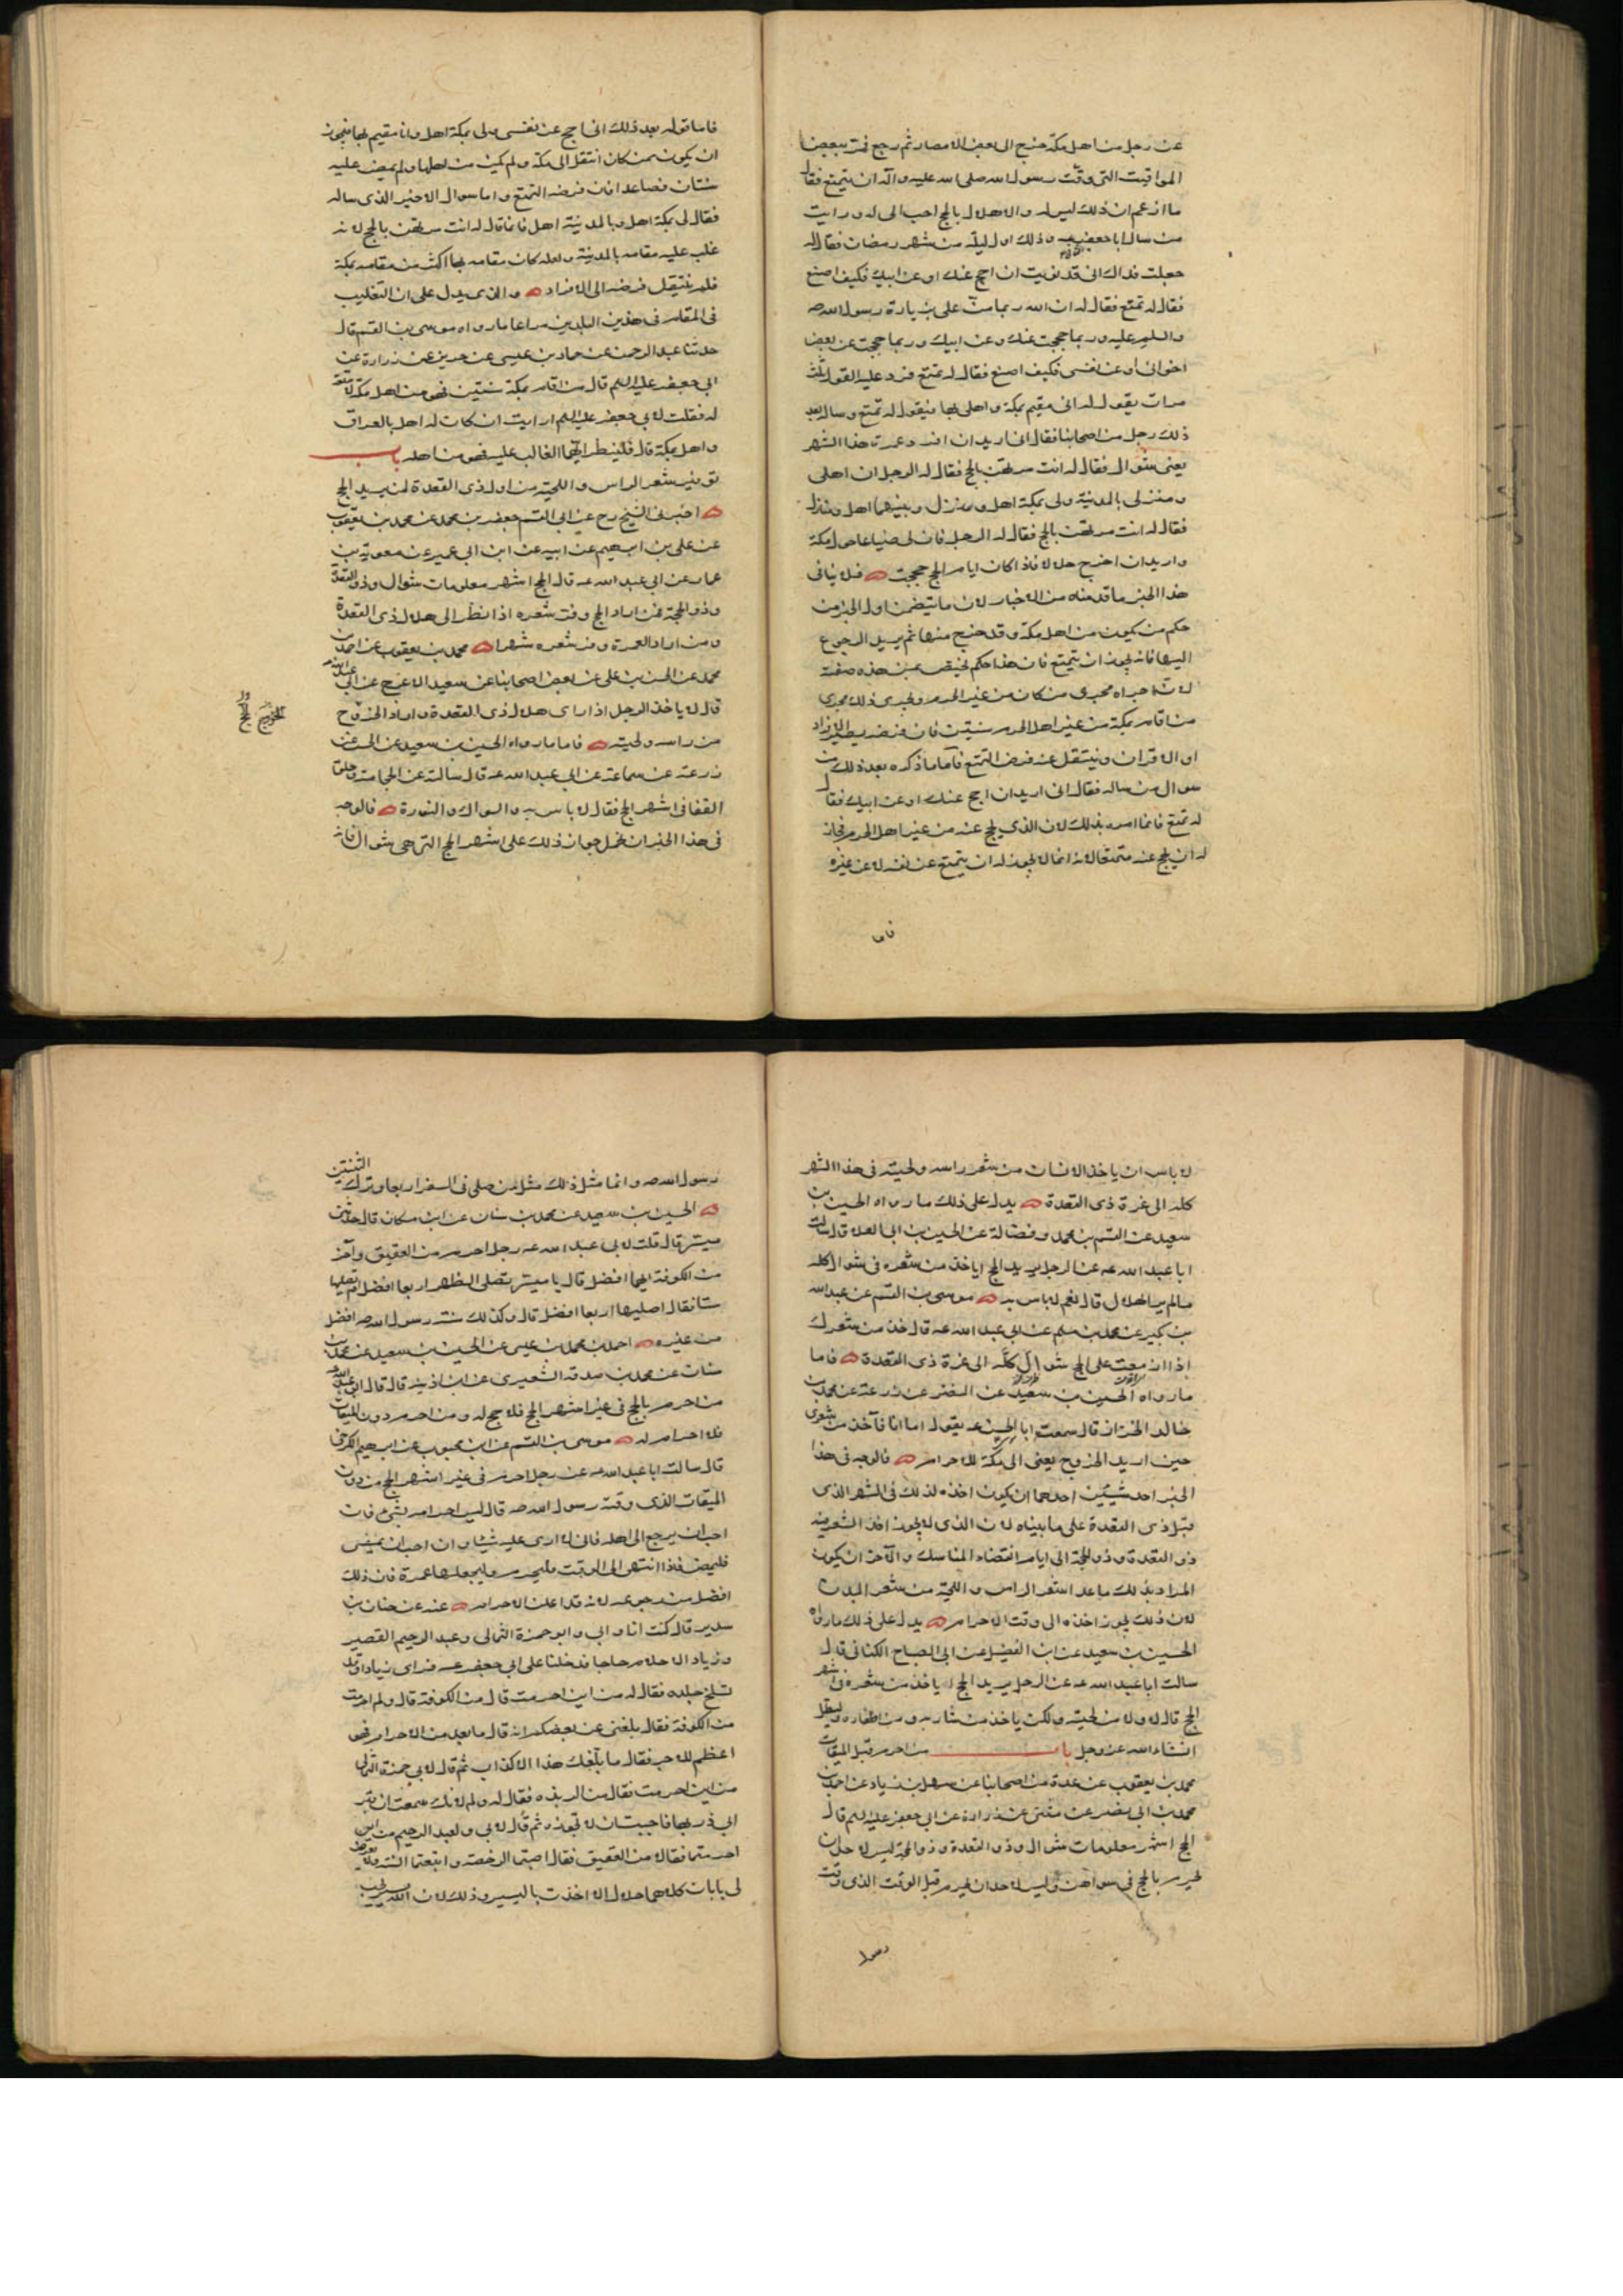 عن رجل من اهل مكة خرج الى بعض الامصار ثم رجع فمر ببعض
المواقيت التى وقّت رسول الله صلى الله عليه وآله ان يتمتع فقال
ما ازعم ان ذلك ليس له والاهلال بالحج احب الى له ورايت
من سال ابا جعفر وذلك اول ليلة من شهر رمضان فقال له
جعلت فداك انى قد نويت ان احج عنك او عن ابيك فكيف اصنع
فقال له تمتع فقال له ان الله ربما منّ على بزيارة رسول الله صه
والسلم عليه وربما حججت عنك وعن ابيك وربما حججت عن بعض
اخوانى او عن نفسى فكيف اصنع فقال له تمتع فرد عليه القول ثلث
مرات يقول له انى مقيم بمكة واهلى بها فيقول له تمتع وساله بعد
ذلك رجل من اصحابنا فقال انى اريد ان افرد عمرة هذا الشهر
يعنى شوال فقال له انت مرتهن بالحج فقال له الرجل ان اهلى
ومنزلى بالمدينة ولى بمكة اهل ومنزل وبينهما اهل ومنازل
فقال له انت مرتهن بالحج فقال له الرجل فان لى ضياعا حول مكة
واريد ان اخرج حلالا فاذا كان ايام الحج حججت فلا ينافى
هذا الخبر ما قدمناه من الاخبار لان ما يتضمن اول الخبر من
حكم من يكون من اهل مكة وقد خرج منها ثم يريد الرجوع
اليها فانه يجوز ان يتمتع فان هذا حكم يختص بمن هذه صفته
لانه اجراه مجرى من كان من غير الحرم ويجرى ذلك مجرى
من اقام بمكة من غير اهل الحرم سنتين فان فرضه يصير الافراد
او الاقران وينتقل عنه فرض التمتع فاما ما ذكره بعد ذلك من
سوال من ساله فقال انى اريد ان احج عنك او عن ابيك فقال
له تمتع فانما امره بذلك لان الذى يحج عنه من غير اهل الحرم فجاز
له ان يحج عنه متمتعا لانه انما لا يجوز له ان يتمتع عن نفسه لا عن غيره
فاما
فاما قوله بعد ذلك انى احج عن نفسى ولى بمكة اهل وانا مقيم بها فيجوز
ان يكون ممن كان انتقل الى مكة ولم يكن من اهلها ولم يمض عليه
سنتان فصاعدا فان فرضه التمتع واما سوال الاخير الذى ساله
فقال لى بمكة اهل وبالمدينة اهل فانما قال له انت مرتهن بالحج لانه
غلب عليه مقامه بالمدينة ولعله كان مقامه بها اكثر من مقامه بمكة
فلم ينتقل فرضه الى الافراد والذى يدل على ان التغليب
فى المقام فى هذين البلدين مراعا ما رواه موسى بن القسم قال
حدثنا عبد الرحمن عن حماد بن عيسى عن حريز عن زرارة عن
ابى جعفر عليه السلم قال من اقام بمكة سنتين فهو من اهل مكة لا متعة
له فقلت لابى جعفر عليه السلم ارايت ان كان له اهل بالعراق
واهل بمكة قال فلينظر ايهما الغالب عليه فهو من اهله باب
توفير شعر الراس واللحية من اول ذى القعدة لمن يريد الحج
اخبرنى الشيخ رح عن ابى القسم جعفر بن محمد عن محمد بن يعقوب
عن على بن ابرهيم عن ابيه عن ابن ابى عمير عن معوية بن
عمار عن ابى عبد الله عه قال الحج اشهر معلومات شوال وذو القعدة
وذو الحجة فمن اراد الحج وفر شعره اذا نظر الى هلال ذى القعدة
ومن اراد العمرة وفر شعره شهرا محمد بن يعقوب عن احمد بن
محمد عن الحسن بن على عن بعض اصحابنا عن سعيد الاعرج عن ابى عبد الله عه
قال لا ياخذ الرجل اذا راى هلال ذى القعدة واراد الخروج
من راسه ولحيته فاما ما رواه الحسين بن سعيد عن الحسن عن
زرعة عن سماعة عن ابى عبد الله عه قال سالته عن الحجامة وحلق
القفا فى اشهر الحج فقال لا باس به والسواك والنورة فالوجه
فى هذا الخبر ان نحمل جواز ذلك على اشهر الحج التى هى شوال فانه
لا باس ان ياخذ الانسان من شعر راسه ولحيته فى هذا الشهر
كله الى غرة ذى القعدة يدل على ذلك ما رواه الحسين بن
سعيد عن القسم بن محمد وفضالة عن الحسين بن ابى العلا قال سالت
ابا عبد الله عه عن الرجل يريد الحج اياخذ من شعره فى شوال كله
ما لم ير الهلال قال نعم لا باس به موسى بن القسم عن عبد الله
بن بكير عن محمد بن مسلم عن ابى عبد الله عه قال خذ من شعرك
اذا ازمعت على الحج شوال كله الى غرة ذى القعدة فاما
ما رواه الحسين بن سعيد عن النضر عن زرعة عن محمد بن
خالد الخزاز قال سمعت ابا الحسن عه يقول اما انا فآخذ من شعرى
حين اريد الخروج يعنى الى مكة للاحرام فالوجه فى هذا
الخبر احد شيئين احدهما ان يكون اخذه لذلك فى الشهر الذى
قبل ذى القعدة على ما بيناه لان الذى لا يجوز اخذ الشعر فيه
ذو القعدة وذو الحجة الى ايام انقضاء المناسك والآخر ان يكون
المراد بذلك ما عدا شعر الراس واللحية من شعر البدن
لان ذلك يجوز اخذه الى وقت الاحرام يدل على ذلك ما رواه
الحسين بن سعيد عن ابن الفضيل عن ابى الصباح الكنانى قال
سالت ابا عبد الله عه عن الرجل يريد الحج اياخذ من شعره فى اشهر
الحج قال لا ولا من لحيته ولكن ياخذ من شاربه ومن اظفاره وليطل
انشاء الله عز وجل باب من احرم قبل الميقات
محمد بن يعقوب عن عدة من اصحابنا عن سهل بن زياد عن احمد بن
محمد بن ابى نصر عن مثنى عن زرارة عن ابى جعفر عليه السلم قال
الحج اشهر معلومات شوال وذو القعدة وذو الحجة ليس لاحد ان
يحرم بالحج فى سواهن وليس لاحد ان يحرم قبل الوقت الذى وقت
رسول
رسول الله صه وانما مثل ذلك مثل من صلى فى السفر اربعا وترك الثنتين
الحسين بن سعيد عن محمد بن سنان عن ابن مسكان قال حدثنى
ميسر قال قلت لابى عبد الله عه رجل احرم من العقيق وآخر
من الكوفة ايهما افضل قال يا ميسر تصلى الظهر اربعا افضل ام تصليها
ستا فقال اصليها اربعا افضل قال وكذلك سنة رسول الله صه افضل
من غيره احمد بن محمد بن عيسى عن الحسين بن سعيد عن محمد بن
سنان عن محمد بن صدقة الشعيرى عن ابن اذينه قال قال ابو عبد الله عه
من احرم بالحج فى غير اشهر الحج فلا حج له ومن احرم دون الميقات
فلا احرام له موسى بن القسم عن ابن محبوب عن ابرهيم الكرخى
قال سالت ابا عبد الله عه عن رجل احرم فى غير اشهر الحج من دون
الميقات الذى وقته رسول الله صه قال ليس احرامه بشئ فان
احب ان يرجع الى اهله فانى لا ارى عليه شيئا وان احب ان يمضى
فليمض فاذا انتهى الى الوقت فليحرم وليجعلها عمرة فان ذلك
افضل من رجوعه لانه قد اعلن الاحرام عنه عن حنان بن
سدير قال كنت انا وابى وابو حمزة الثمالى وعبد الرحيم القصير
وزياد الاحلام حاجا فدخلنا على ابى جعفر عه فراى زيادا قد
تسلخ جلده فقال له من اين احرمت قال من الكوفة قال ولم احرمت
من الكوفة فقال بلغنى عن بعضكم انه قال ما بعد من الاحرام فهو
اعظم للاجر فقال ما بلّغك هذا الا كذاب ثم قال لابى حمزة الثمالى
من اين احرمت فقال من الربذه فقال له ولم لانك سمعت ان قبر
ابى ذر بها فاحببت ان لا تجوزه ثم قال لابى ولعبد الرحيم من اين
احرمتما فقالا من العقيق فقال اصبتما الرخصة واتبعتما السنة ولا يعرض
لى بابان كلاهما حلال الا اخذت باليسير وذلك لان الله يسير يحب